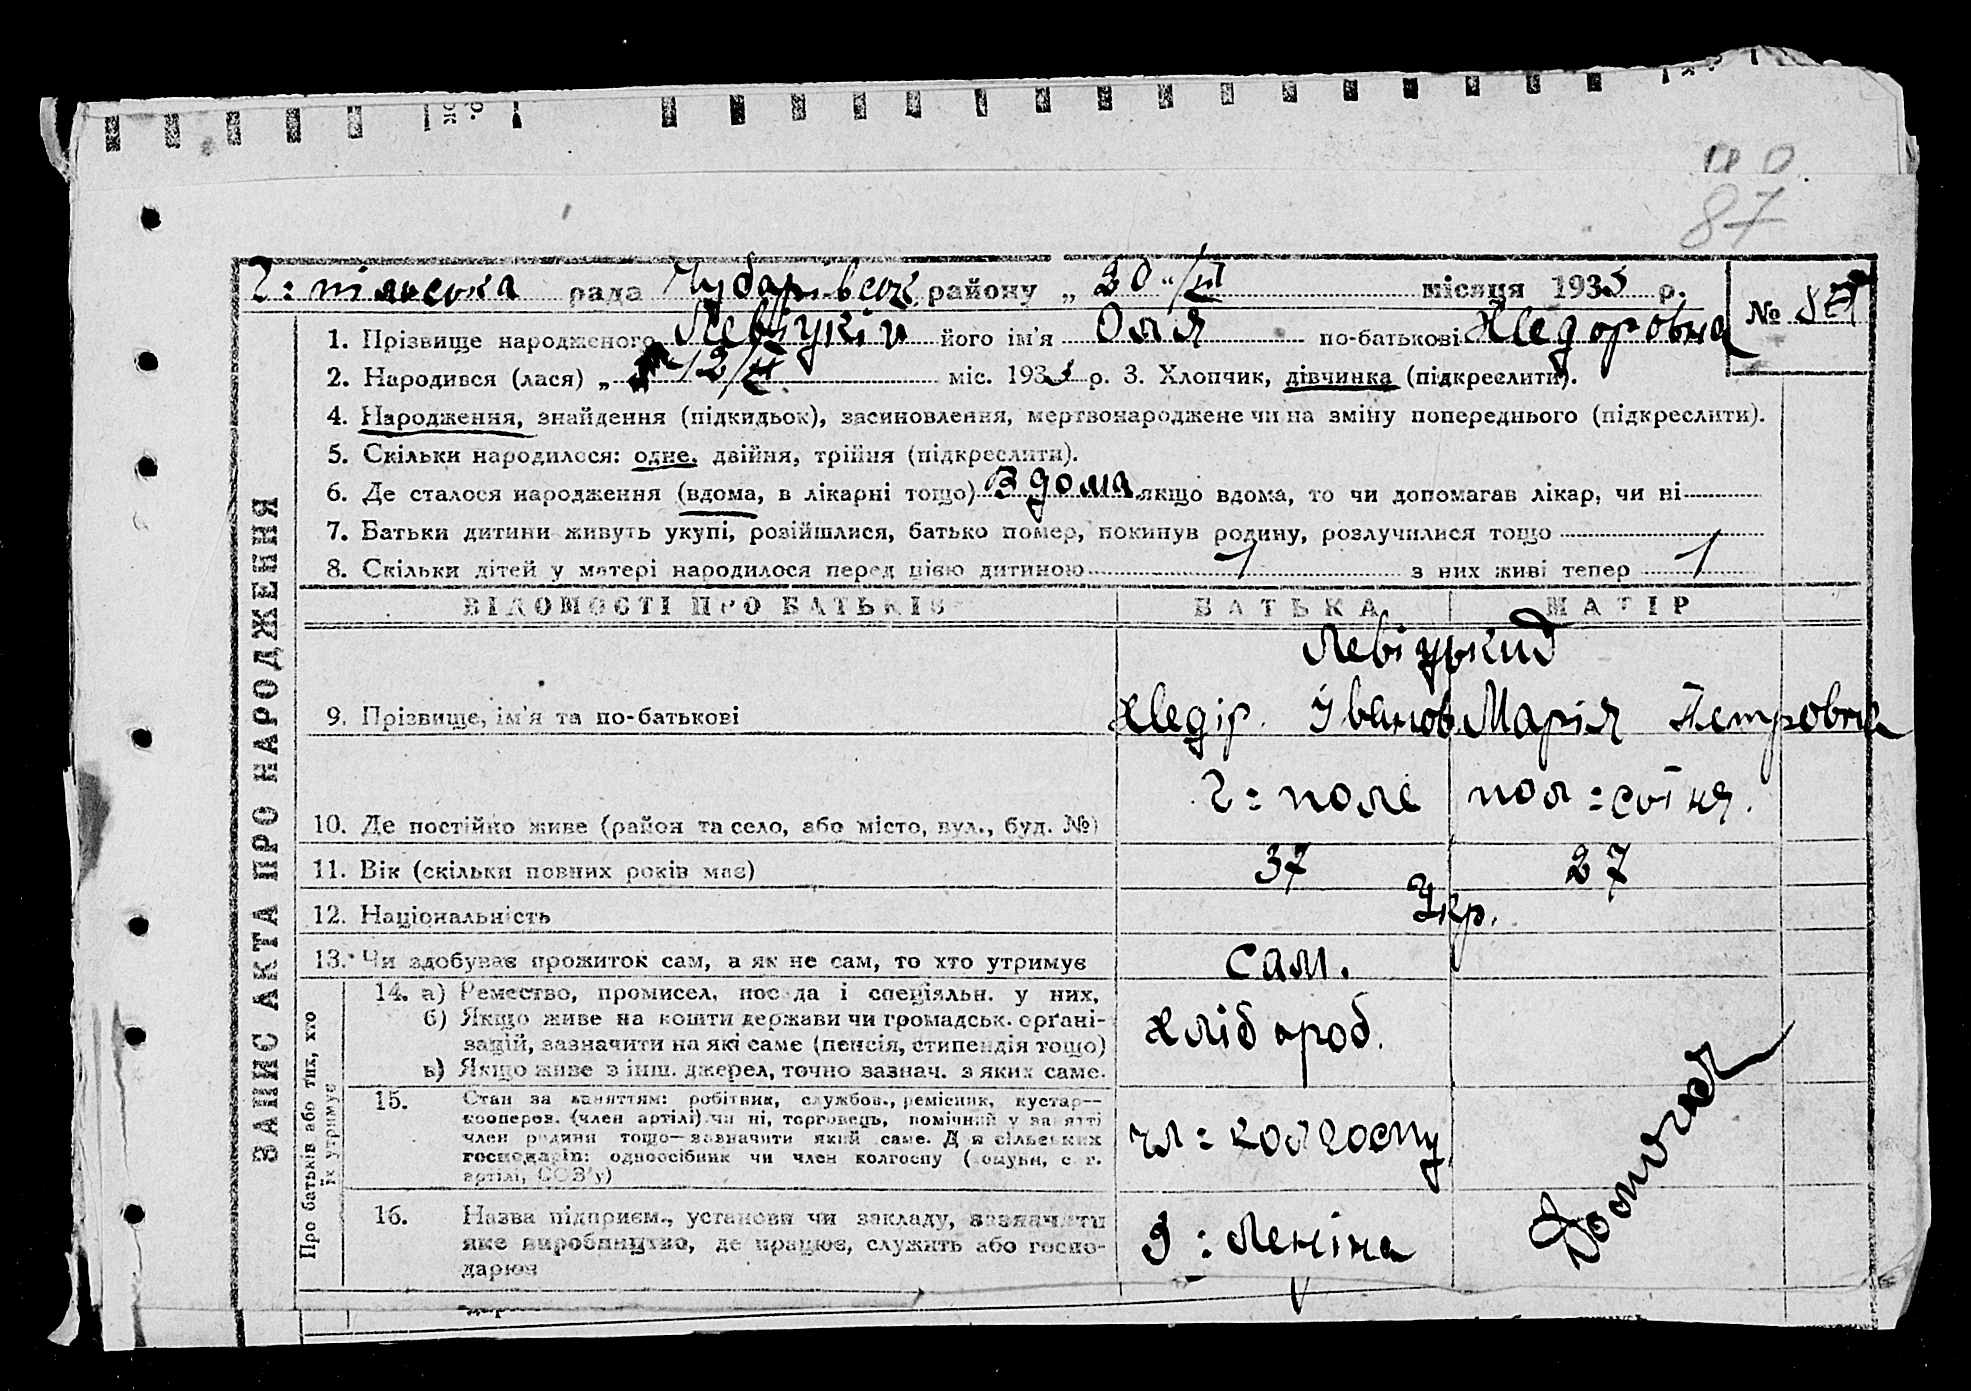 87
Г: пільська рада Чубарівськ. району „ 20 "/III місяця 1933 р.
№
1. Прізвище народженого Левіцкій його ім'я Оля по-батькові Хведоровна
2. Народився (лася) „ 12/III міс. 1933 р. 3. Хлопчик, дівчинка (підкреслити).
4. Народження, знайдення (підкидьок), засиновлення, мертвонароджене чи на зміну попереднього (підкреслити).
5. Скільки народилося: одне, двійня, трійня (підкреслити).
6. Де сталося народження (вдома, в лікарні тощо) Вдома якщо вдома, то чи допомагав лікар, чи ні
7. Батьки дитини живуть укупі, розійшлися, батько помер, покинув родину, розлучилися тощо
8. Скільки дітей у матері народилося перед цією дитиною 1 з них живі тепер 1
ЗАПИС АКТА ПРО НАРОДЖЕННЯ
ВІДОМОСТІ ПРО БАТЬКІВ БАТЬКА МАТІР
Левіцький
9. Прізвище, ім'я та по-батькові Хведір. Іванов. Марія Петровна
10. Де постійно живе (район та село, або місто, вул., буд. №) Г: поле
11. Вік (скільки повних років має) 37 27
12. Національність Укр.
13. Чи здобуває прожиток сам, а як не сам, то хто утримує сам.
Про батьків або тих, хто їх утримує
14. а) Ремество, промисел, посада і спеціяльн. у них,
б) Якщо живе на кошти держави чи громадськ. органі-
зацій, зазначити на які саме (пенсія, стипендія тощо)
в) Якщо живе з інш. джерел, точно зазнач. з яких саме.
Хлібороб.
15. Стан за заняттям: робітник, службов., ремісник, кустар—
кооперов. (член артілі) чи ні, торговець, помічний у занятті
член родини тощо—зазначити який саме. Для сільських
господарів: одноосібник чи член колгоспу (комуни, с. г.
артілі, СОЗ'у)
чл: колгоспу
16. Назва підприєм., установи чи закладу, зазначити
яке виробництво, де працює, служить або госпо-
дарює
Леніна